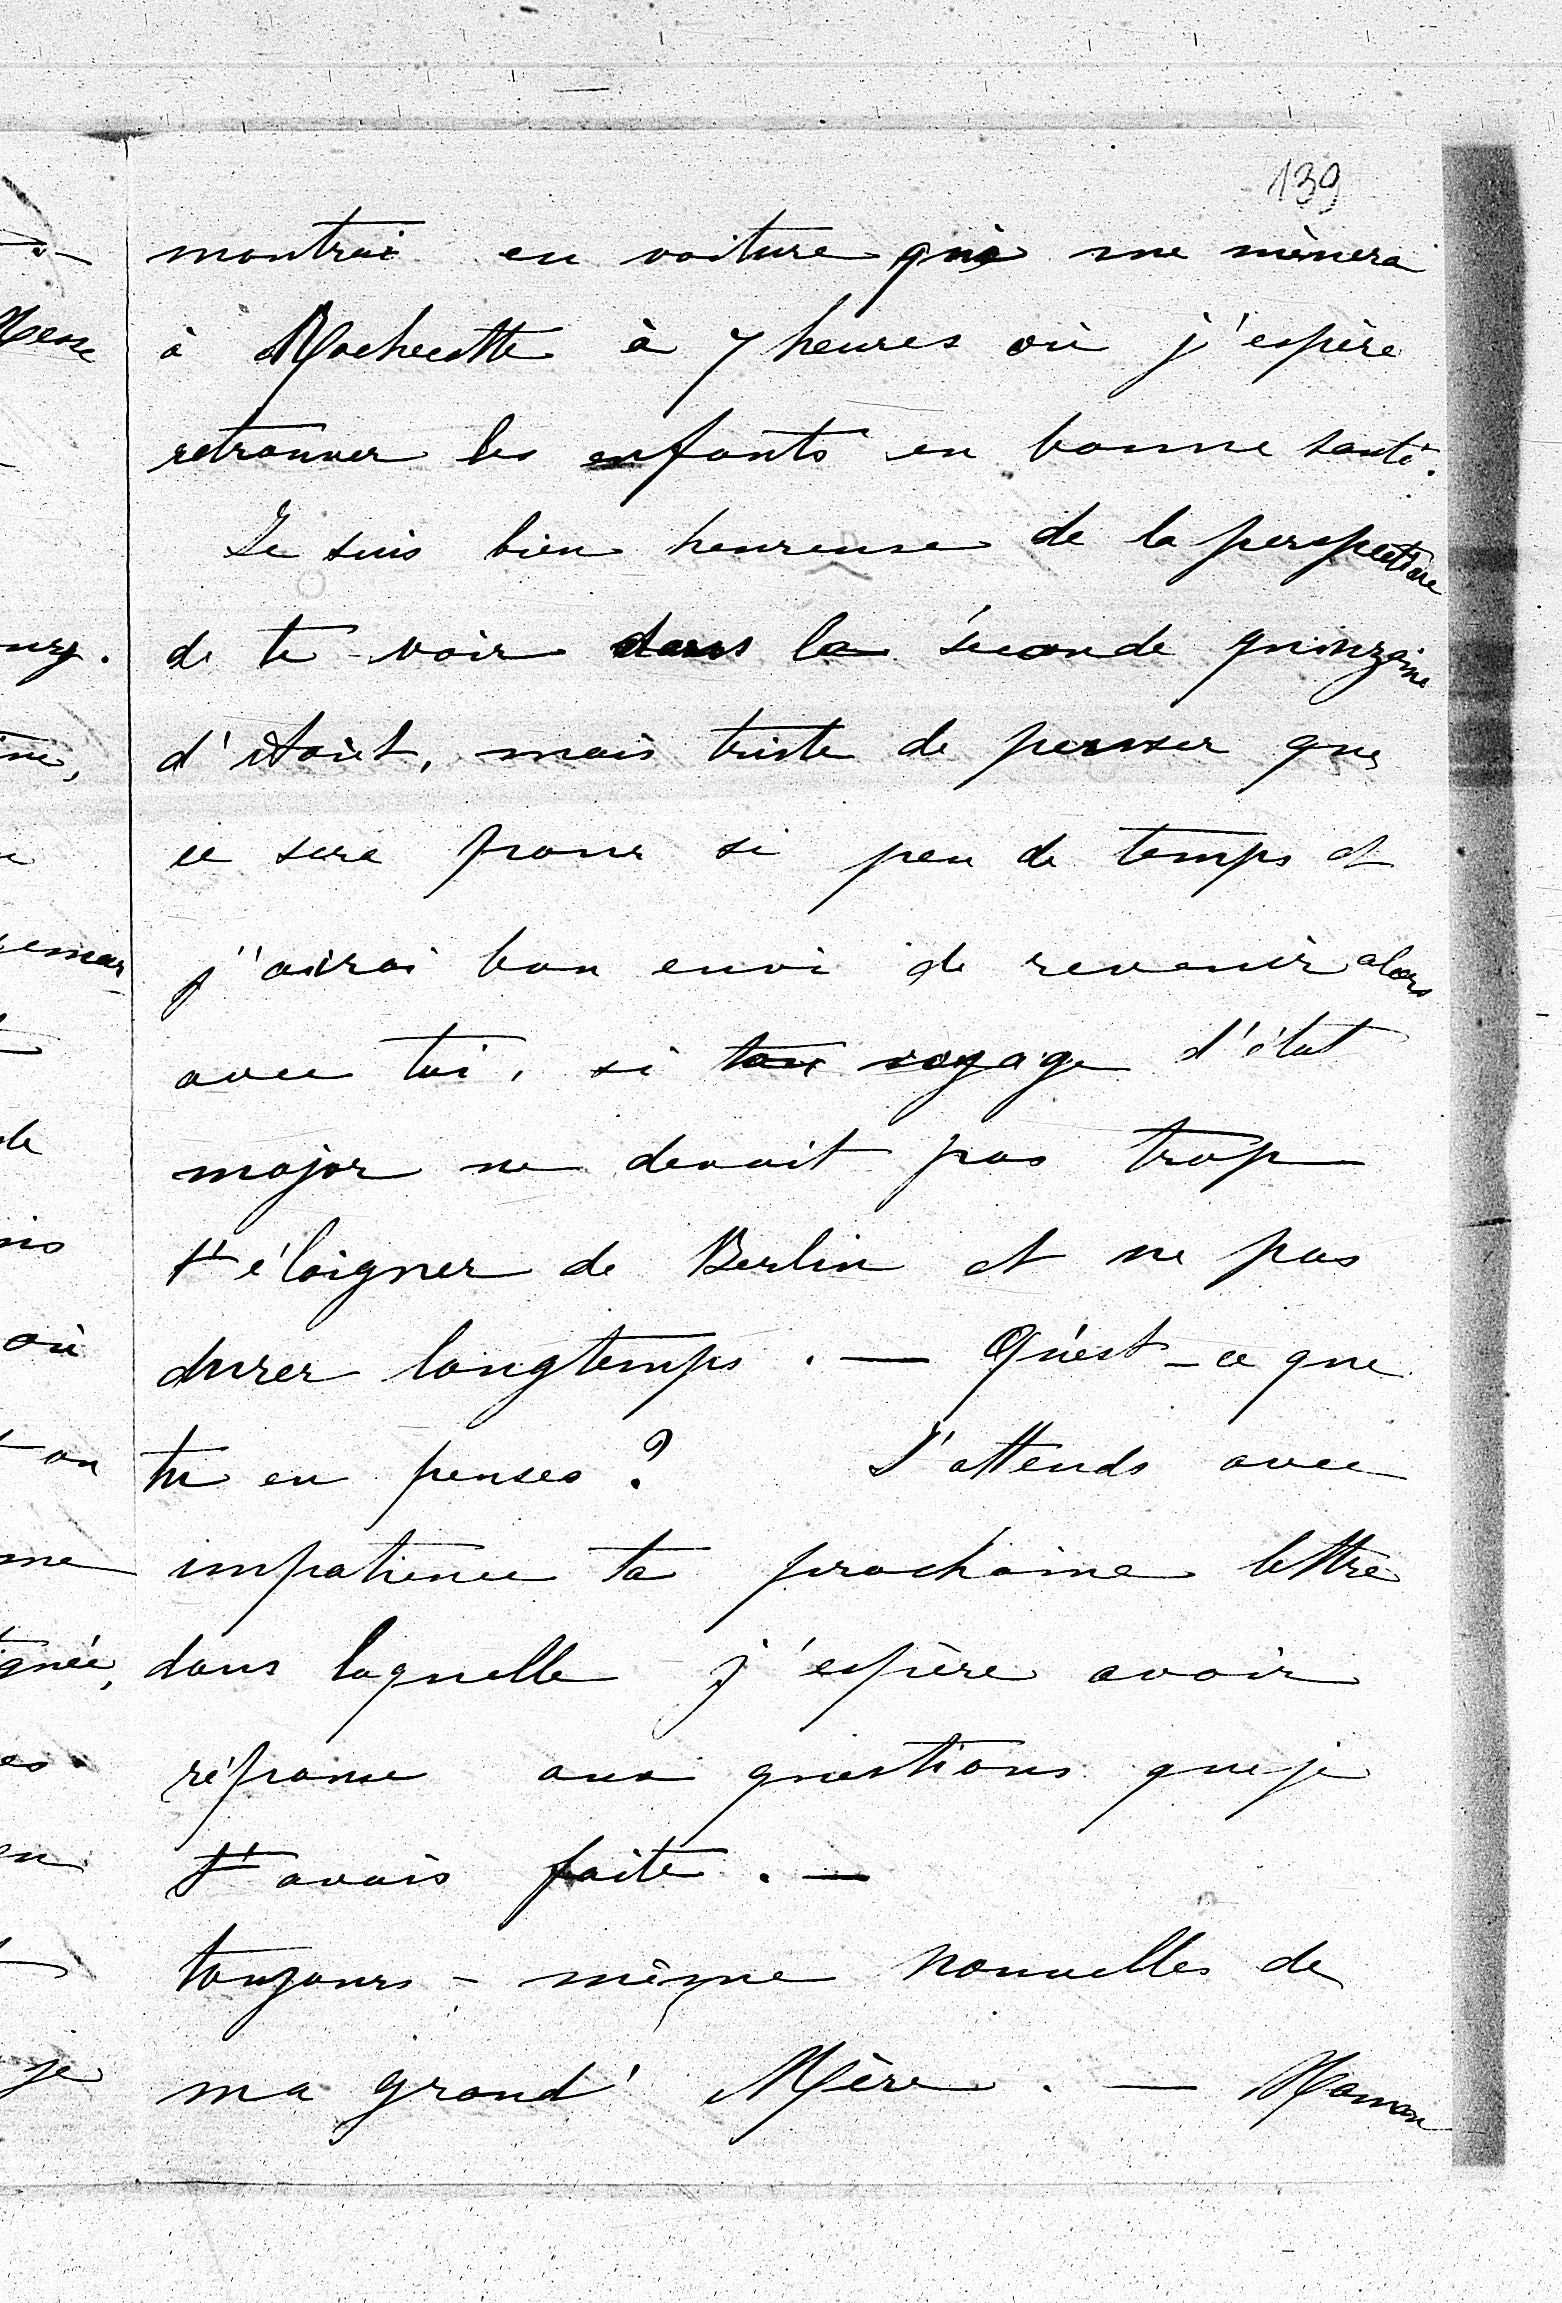 139
montrai en voiture qui me mènera
à Rochecotte à 7 heures où j'espère
retrouver les enfants en bonne santé.
Je suis bien heureuse de la perspective
de te voir dans la seconde quinzaine
d'Août, mais triste de penser que
ce sera pour si peu de temps et
j'airai bon envi de revenir alors
avec toi, si ton voyage d'état
major ne devait pas trop
t'éloigner de Berlin et ne pas
durer longtemps. — Qu'est-ce que
tu en penses? J'attends avec
impatience ta prochaine lettre
dans laquelle j'espère avoir
réponse aux questions que je
t'avais faite. —
toujours - même nouvelles de
ma grand' Mère. — Maman